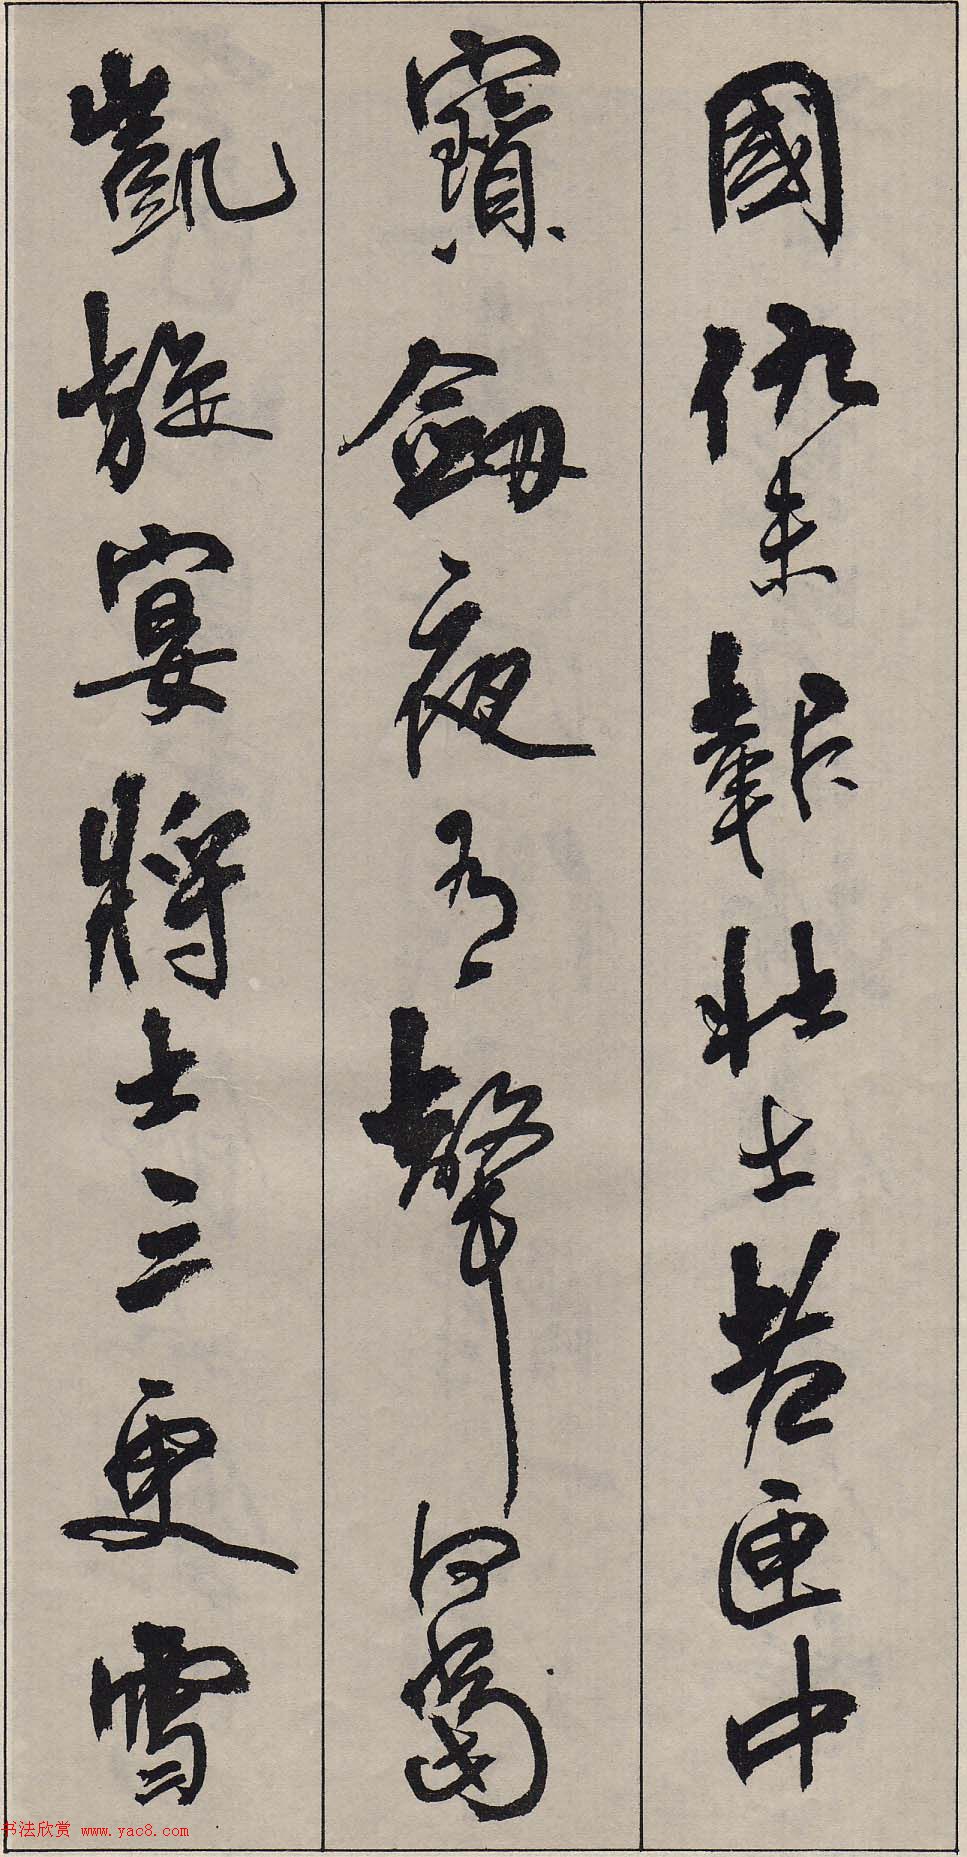 國仇未報壯士老匣中
寶劔夜有聲何當
凱旋宴將士三更雪
书法欣赏 www.yac8.com